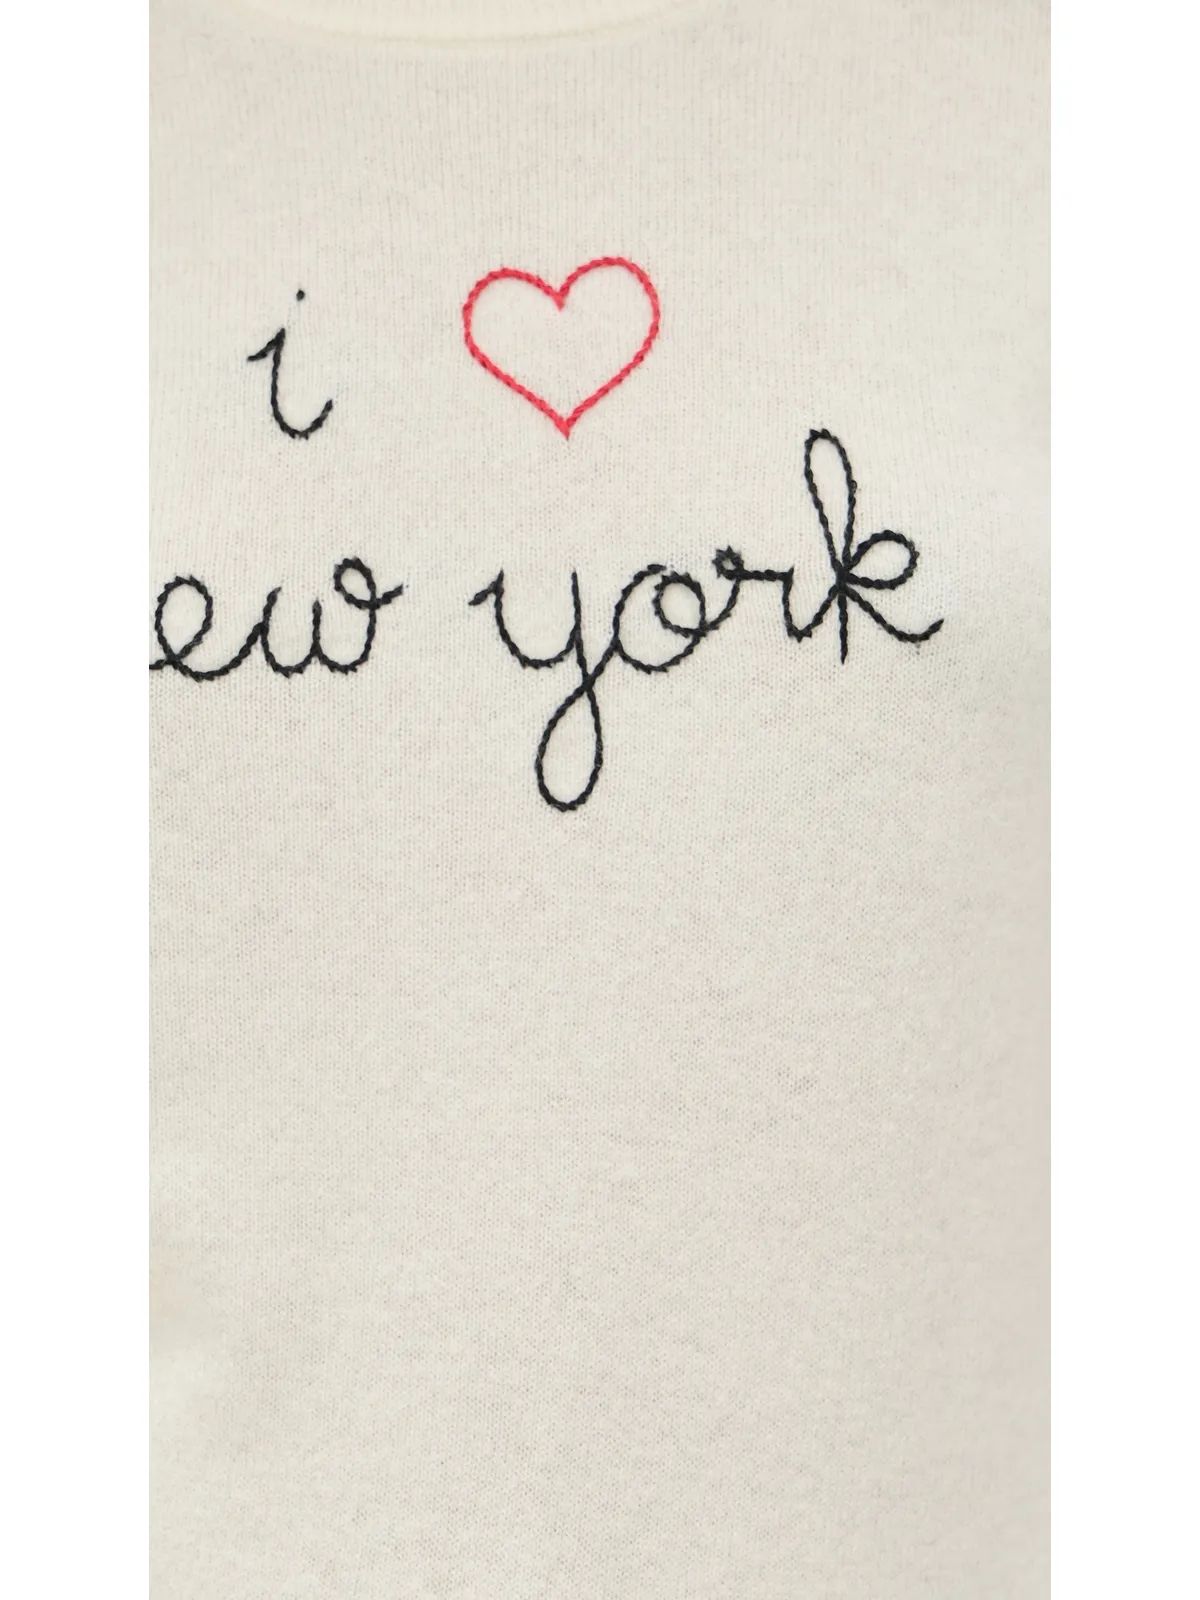 i ♡
ew york